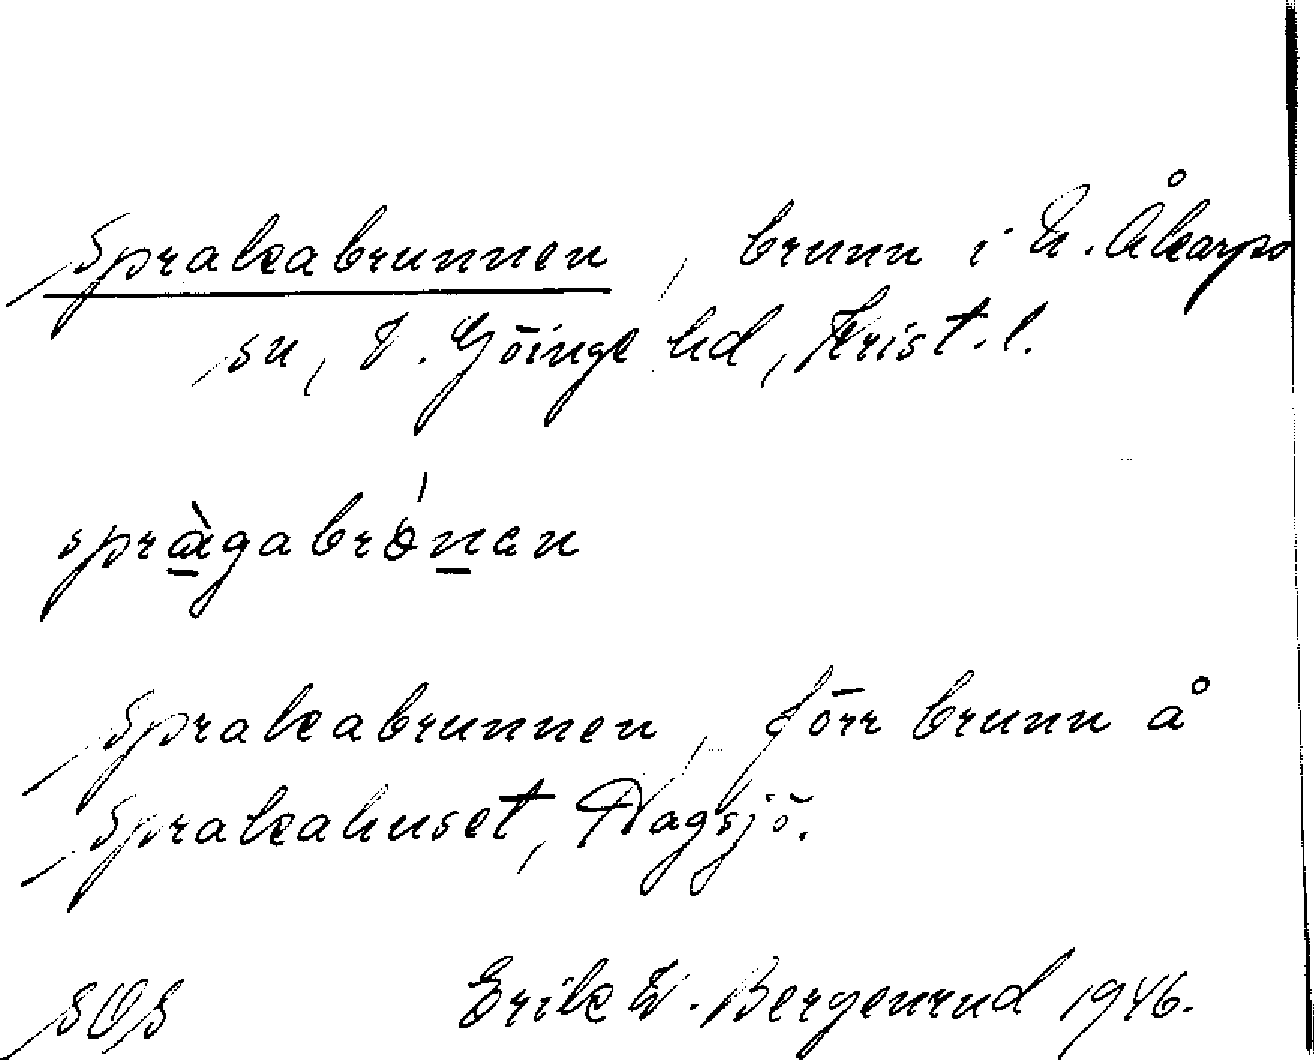 Sprakabrunnen, brunn i N. Åkarps
sn, V. Göinge hd, Krist. l.
spràgabrónan
Sprakabrunnen, förr brunn å
Sprakahuset, Hagsjö.
SOS Erik W. Bergenrud 1946.